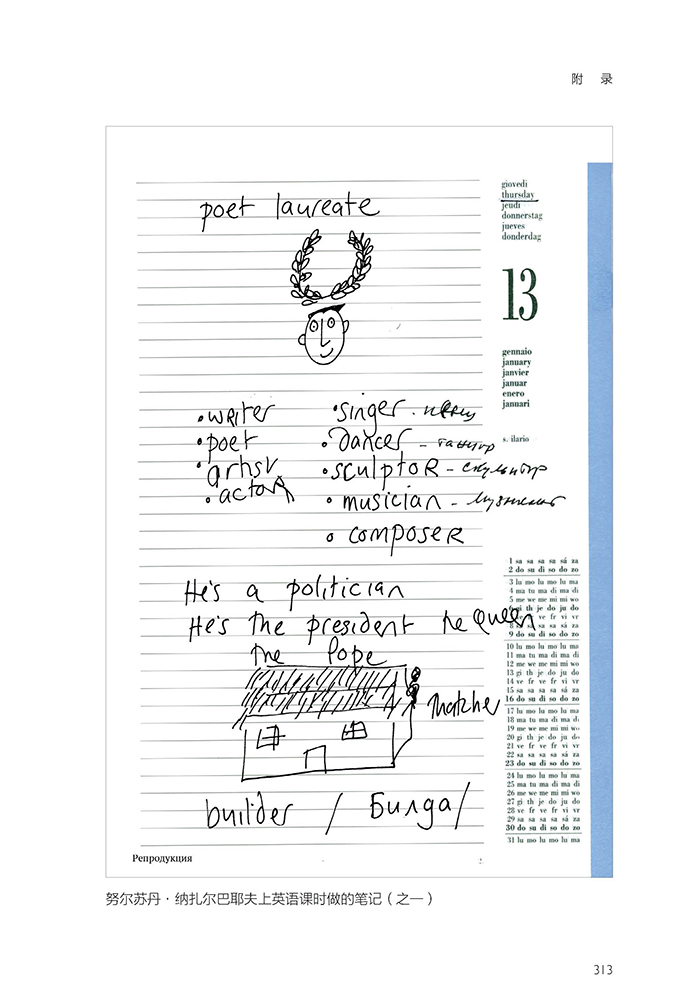 附 录
poet laureate
giovedi
thursday
jeudi
donnerstag
jueves
donderdag
13
gennaio
january
janvier
januar
enero
januari
s. ilario
• writer
• poet
• artist
• actor
• singer - певец
• dancer - танцор
• sculptor - скульптор
• musician - музыкант
• composer
He's a politician
He's the president he Queen
The Pope
Thatcher
builder / Билда /
1 sa sa sa sa sá za
2 do su di so do zo
3 lu mo lu mo lu ma
4 ma tu ma di ma di
5 me we me mi mi wo
6 gi th je do ju do
7 ve fr ve fr vi vr
8 sa sa sa sa sá za
9 do su di so do zo
10 lu mo lu mo lu ma
11 ma tu ma di ma di
12 me we me mi mi wo
13 gi th je do ju do
14 ve fr ve fr vi vr
15 sa sa sa sa sá za
16 do su di so do zo
17 lu mo lu mo lu ma
18 ma tu ma di ma di
19 me we me mi mi wo
20 gi th je do ju do
21 ve fr ve fr vi vr
22 sa sa sa sa sá za
23 do su di so do zo
24 lu mo lu mo lu ma
25 ma tu ma di ma di
26 me we me mi mi wo
27 gi th je do ju do
28 ve fr ve fr vi vr
29 sa sa sa sa sá za
30 do su di so do zo
31 lu mo lu mo lu ma
Репродукция
努尔苏丹·纳扎尔巴耶夫上英语课时做的笔记（之一）
313